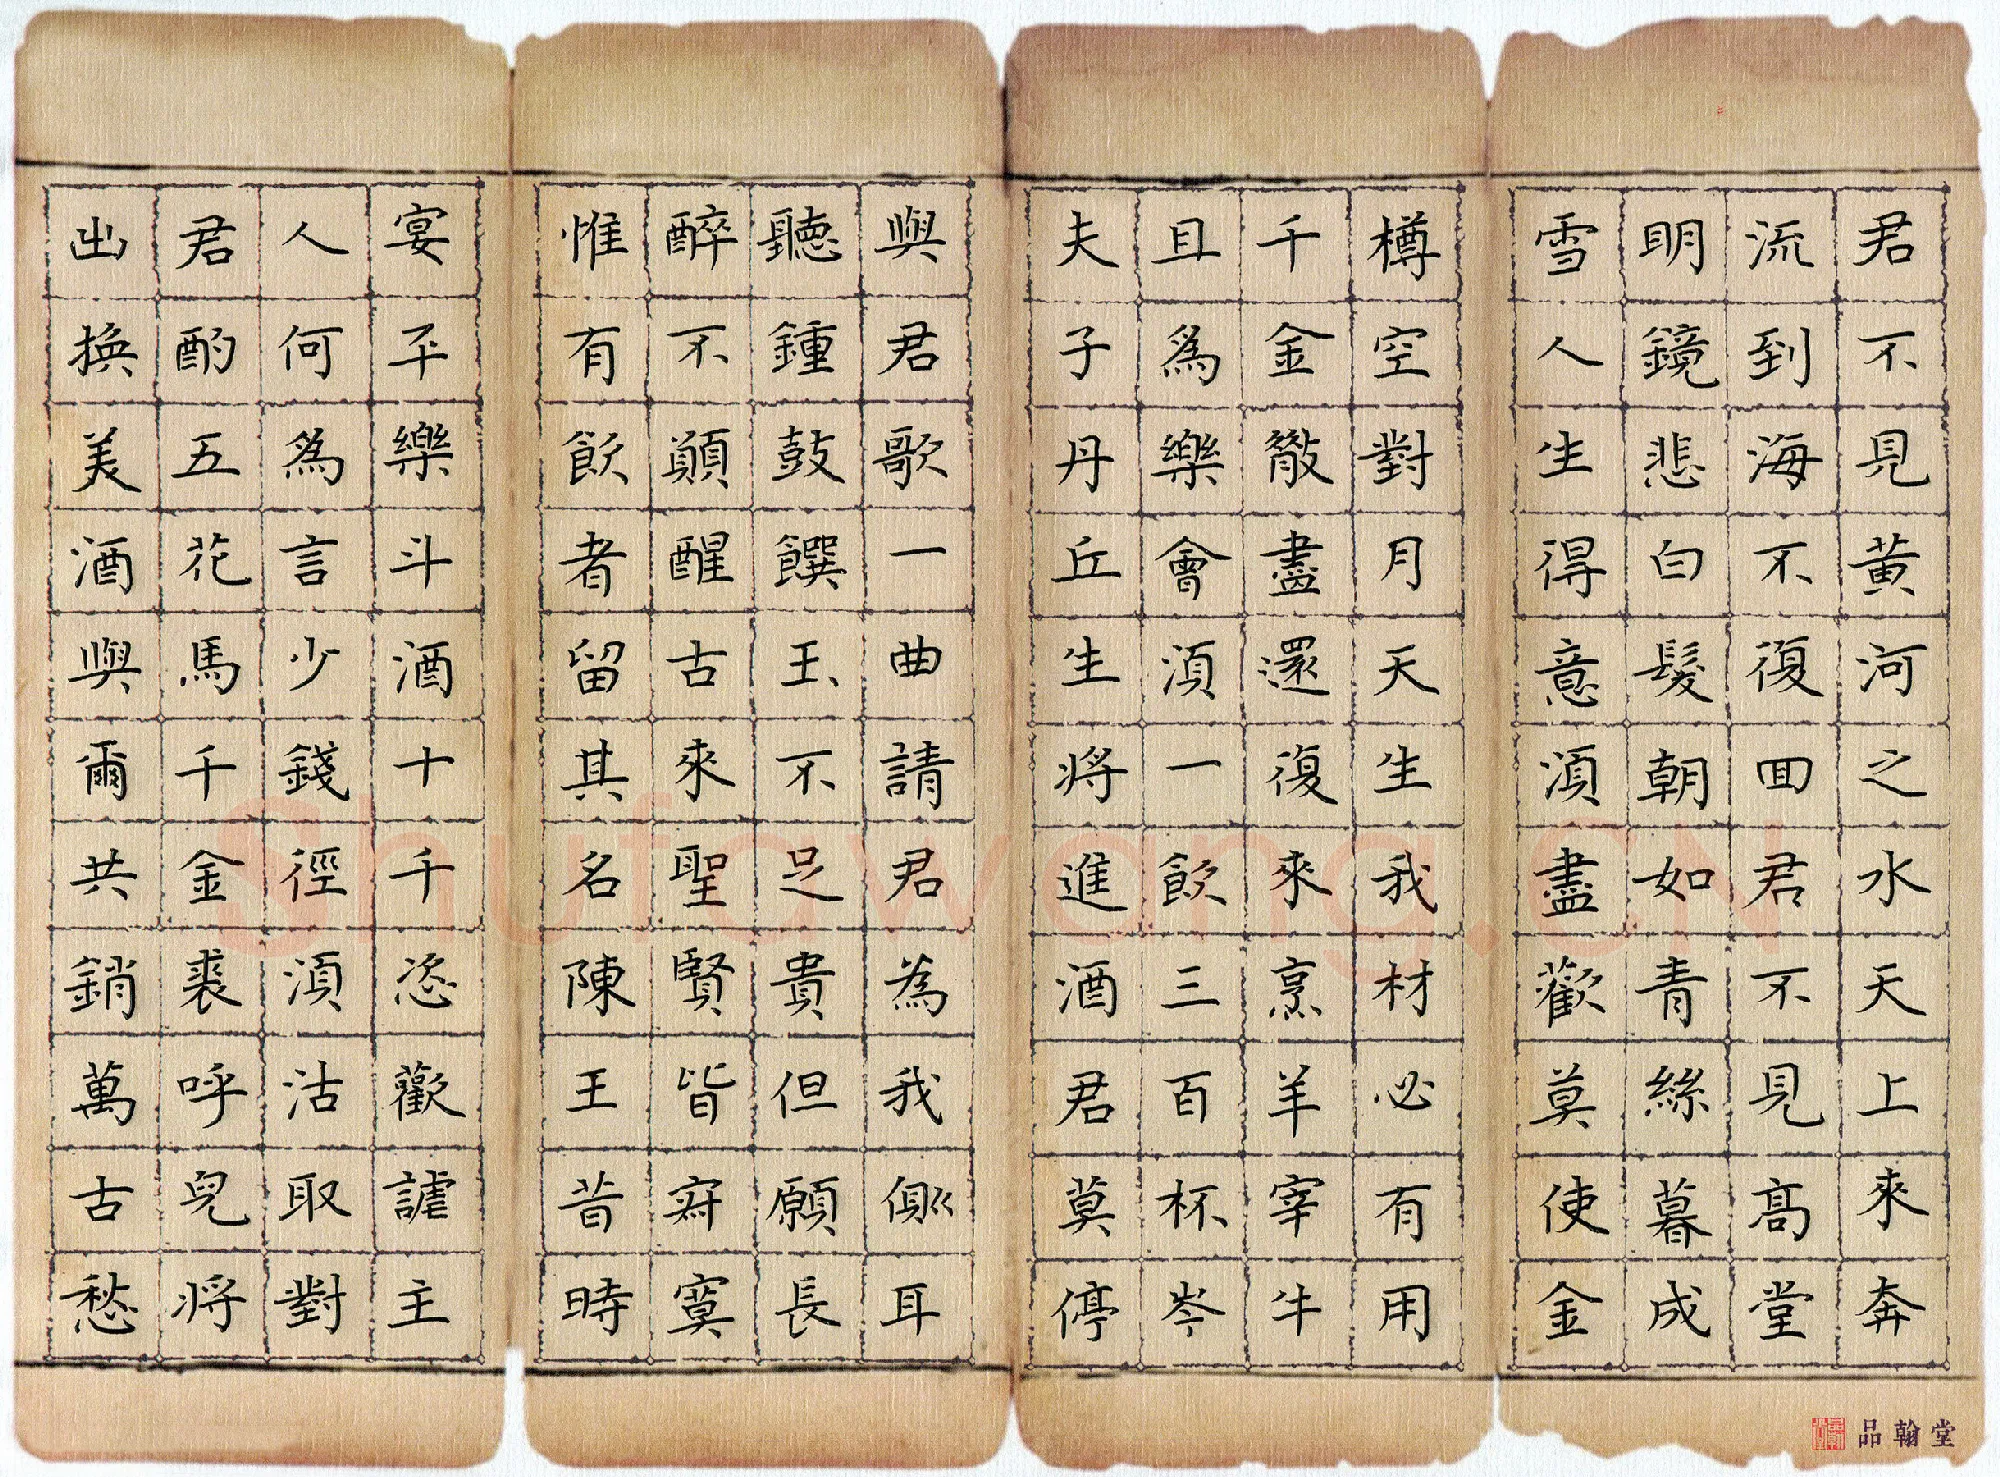 君不見黃河之水天上來奔
流到海不復回君不見高堂
明鏡悲白髮朝如青絲暮成
雪人生得意須盡歡莫使金
樽空對月天生我材必有用
千金散盡還復來烹羊宰牛
且為樂會須一飲三百杯岑
夫子丹丘生將進酒君莫停
與君歌一曲請君為我側耳
聽鍾鼓饌玉不足貴但願長
醉不願醒古來聖賢皆寂寞
惟有飲者留其名陳王昔時
宴平樂斗酒十千恣歡謔主
人何為言少錢徑須沽取對
君酌五花馬千金裘呼兒將
出換美酒與爾共銷萬古愁
品翰堂
Shufawang.CN